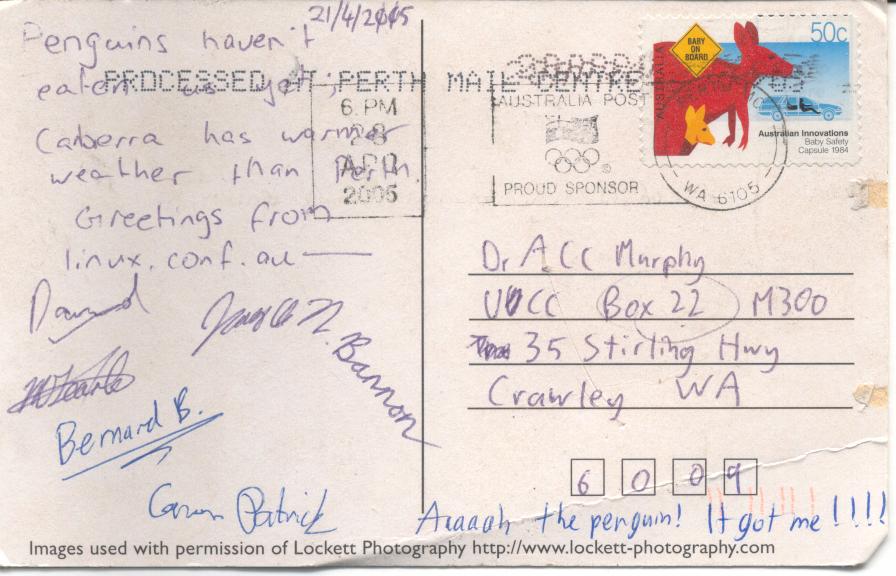 21/4/2005
Penguins haven't
eaten us yet;
Canberra has warmer
weather than Perth.
Greetings from
linux.conf.au
David
Bannon
Bernard B.
Patrick
PROCESSED AT PERTH MAIL CENTRE
6 PM
28
APR
2005
AUSTRALIA POST
PROUD SPONSOR
WA 6105
BABY
ON
BOARD
50c
AUSTRALIA
Australian Innovations
Baby Safety
Capsule 1984
Dr ACC Murphy
UCC Box 22 M300
35 Stirling Hwy
Crawley WA
6 0 0 9
Auaaah the penguin! It got me!!!!
Images used with permission of Lockett Photography http://www.lockett-photography.com